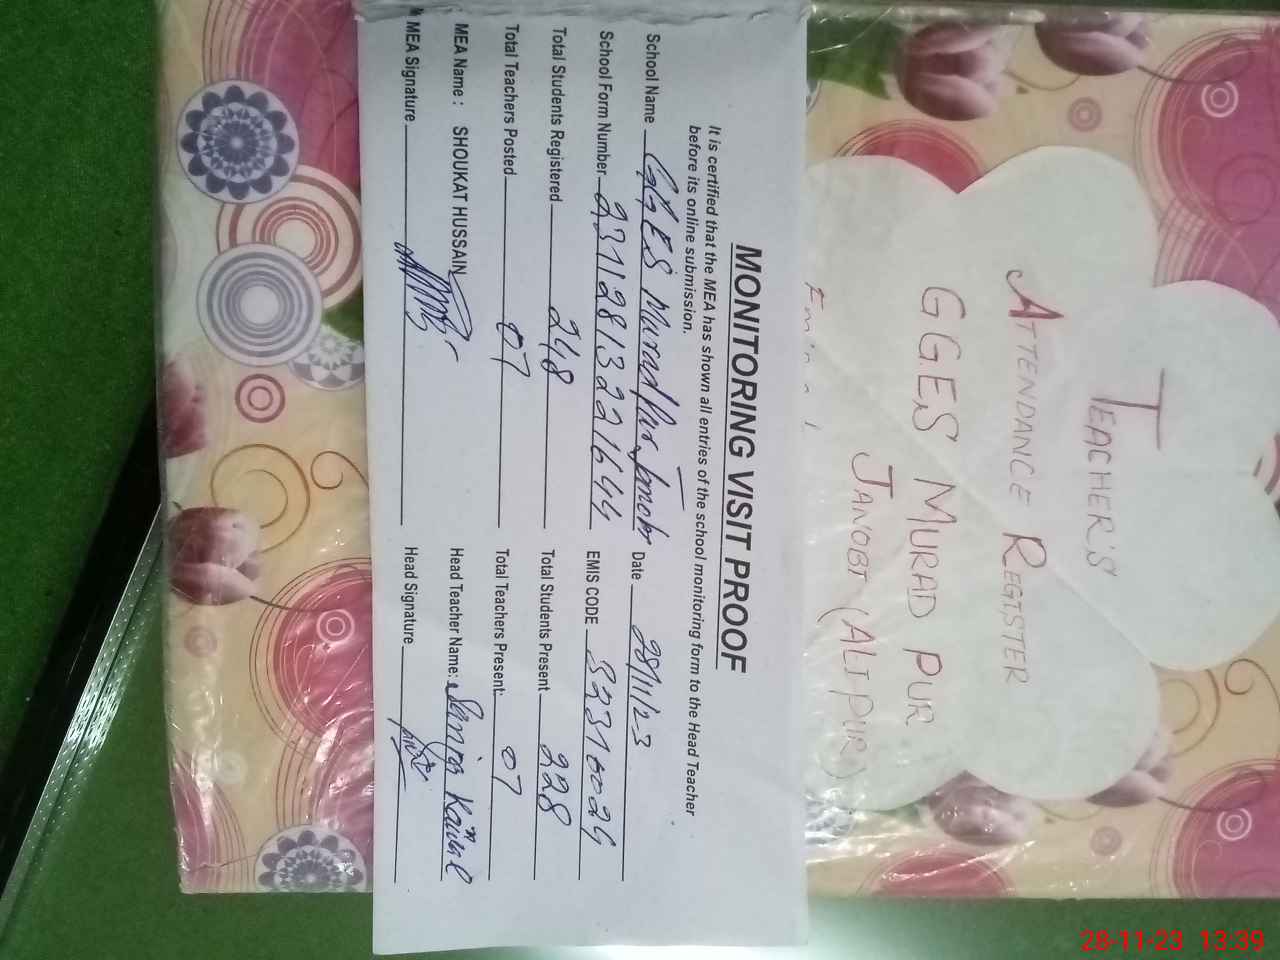 TEACHER'S
ATTENDANCE REGISTER
GGES MURAD PUR
JANOBI (ALI PUR)
MONITORING VISIT PROOF
It is certified that the MEA has shown all entries of the school monitoring form to the Head Teacher
before its online submission.
School Name GGES Murad Pur Janobi Date 28/11/23
School Form Number 23112813221644 EMIS CODE
Total Students Registered 248 Total Students Present 228
Total Teachers Posted 07 Total Teachers Present: 07
MEA Name : SHOUKAT HUSSAIN Head Teacher Name:
MEA Signature Head Signature
28-11-23 13:39